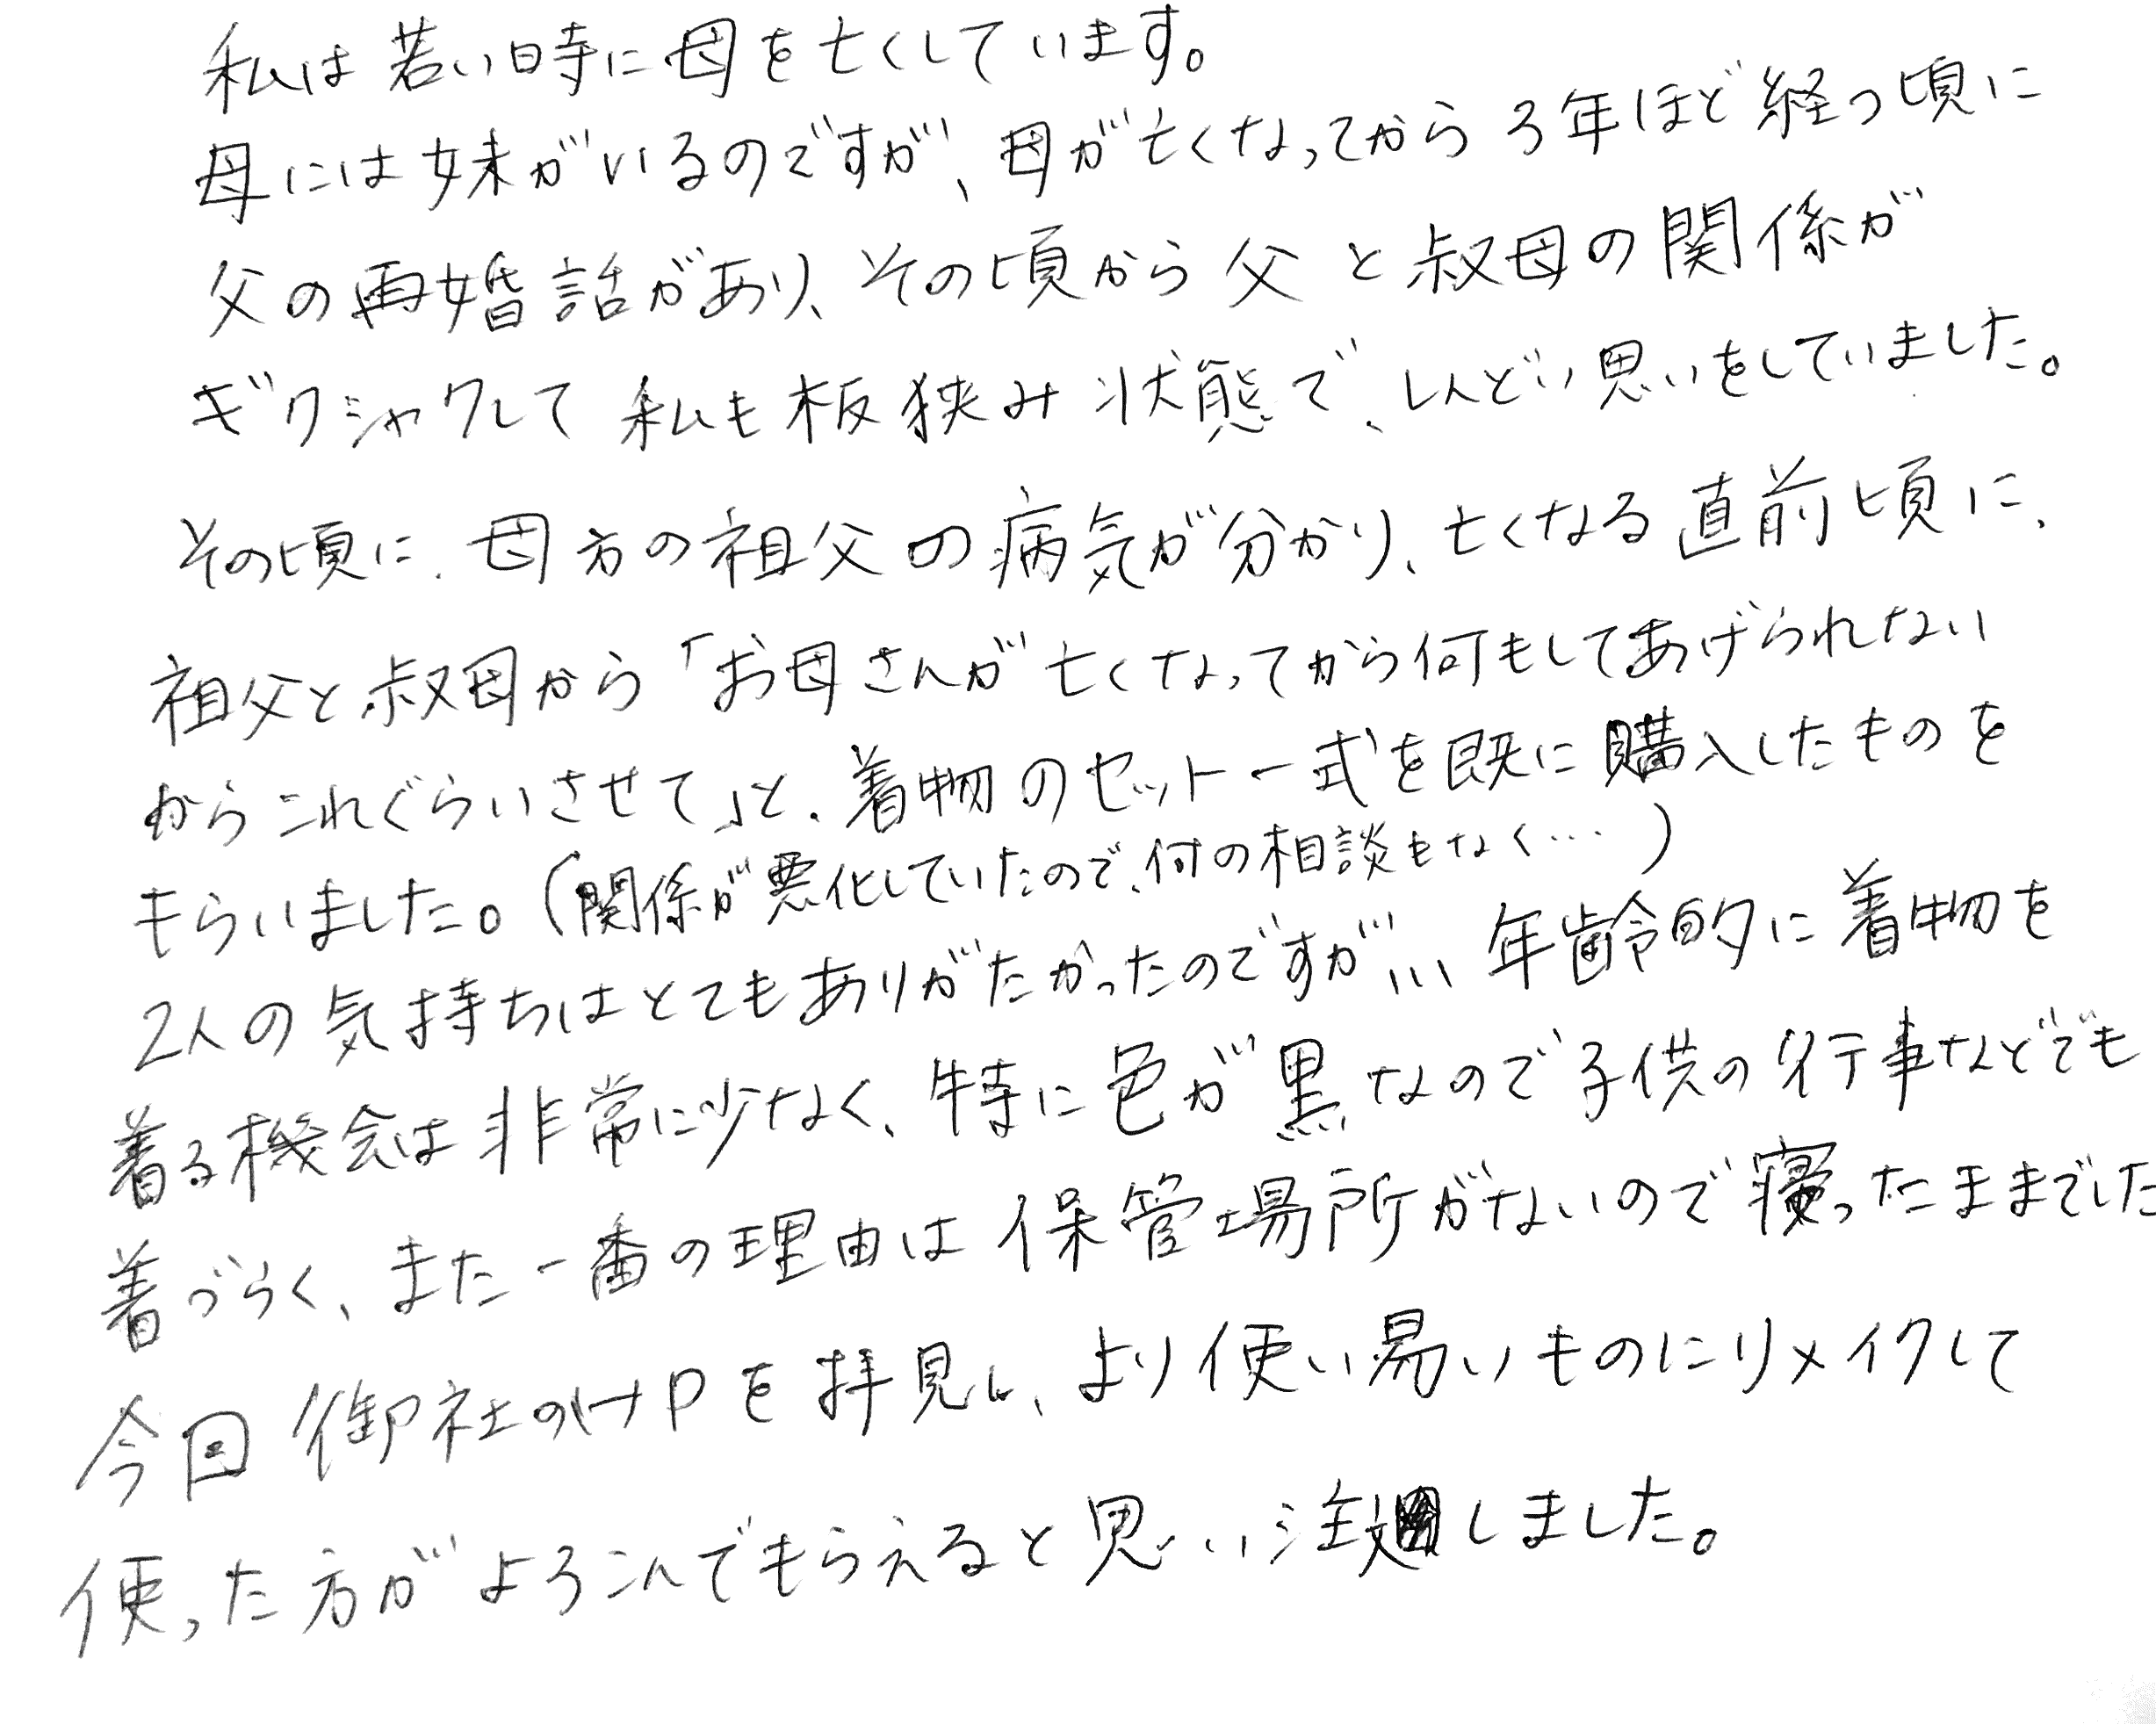 私は若い時に母を亡くしています。
母には妹がいるのですが、母が亡くなってから3年ほど経つ頃に
父の再婚話があり、その頃から父と叔母の関係が
ギクシャクして私も板狭み状態で、しんどい思いをしていました。
その頃に、母方の祖父の病気が分かり、亡くなる直前頃に、
祖父と叔母から「お母さんが亡くなってから何もしてあげられない
からこれぐらいさせて」と、着物のセット一式を既に購入したものを
もらいました。(関係が悪化していたので、何の相談もなく…)
2人の気持ちはとてもありがたかったのですが…年齢的に着物を
着る機会は非常に少なく、特に色が黒なので子供の行事などでも
着づらく、また一番の理由は保管場所がないので寝ったままでした
今回御社のHPを拝見し、より使い易いものにリメイクして
使った方がよろこんでもらえると思い注しました。